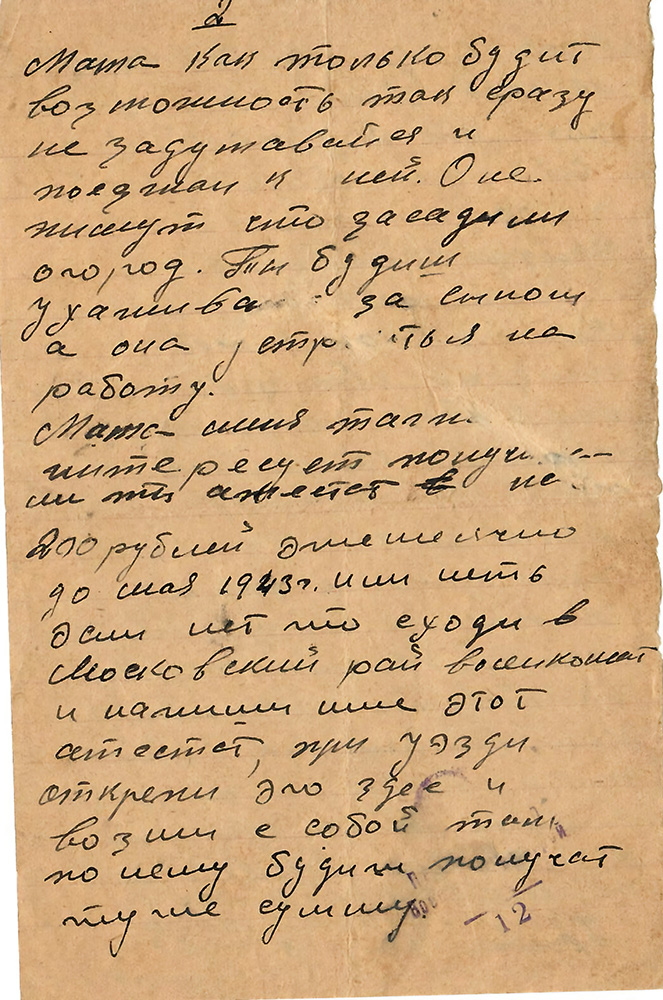 2
Мама как только будит
возможность так сразу
не задумавайся и
поезжай к ней. Оне
пишут что засадили
огород. Ты будиш
ухажива за сыном
а она устр ться на
работу.
Мама миня
интересует
ли ты атестат в на
200 рублей эжемесячно
до мая 1943г. или неть
эсли нет то сходи в
Московский рай военкомат
и напиши мне этот
атестат, при уэзди
открепи эго здес и
возми с собой там
по нему будиш получат
туже сумму.
12